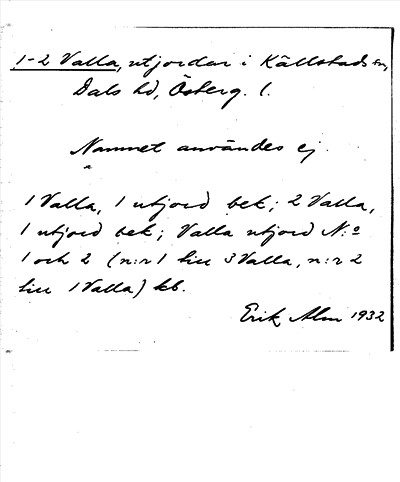 1-2 Valla, utjordar i Källstads sn,
Dals hd, Österg. l.
Namnet användes ej.
1 Valla, 1 utjord bek; 2 Valla,
1 utjord bek; Valla utjord N:o
1 och 2 (n:r 1 till 3 Valla, n:r 2
till 1 Valla) kb.
Erik Alm 1932